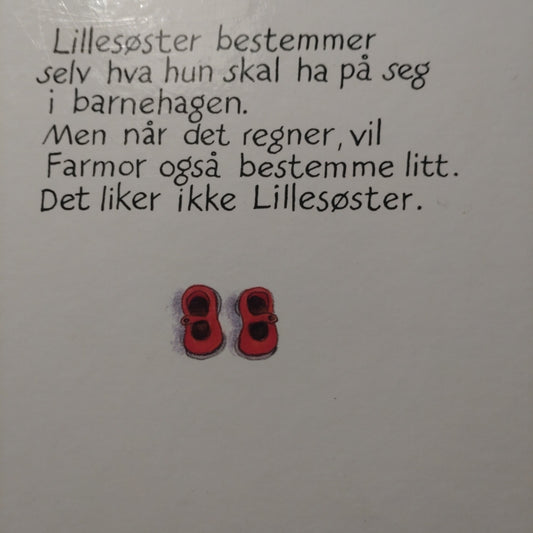 Lillesøster bestemmer
selv hva hun skal ha på seg
i barnehagen.
Men når det regner, vil
Farmor også bestemme litt.
Det liker ikke Lillesøster.